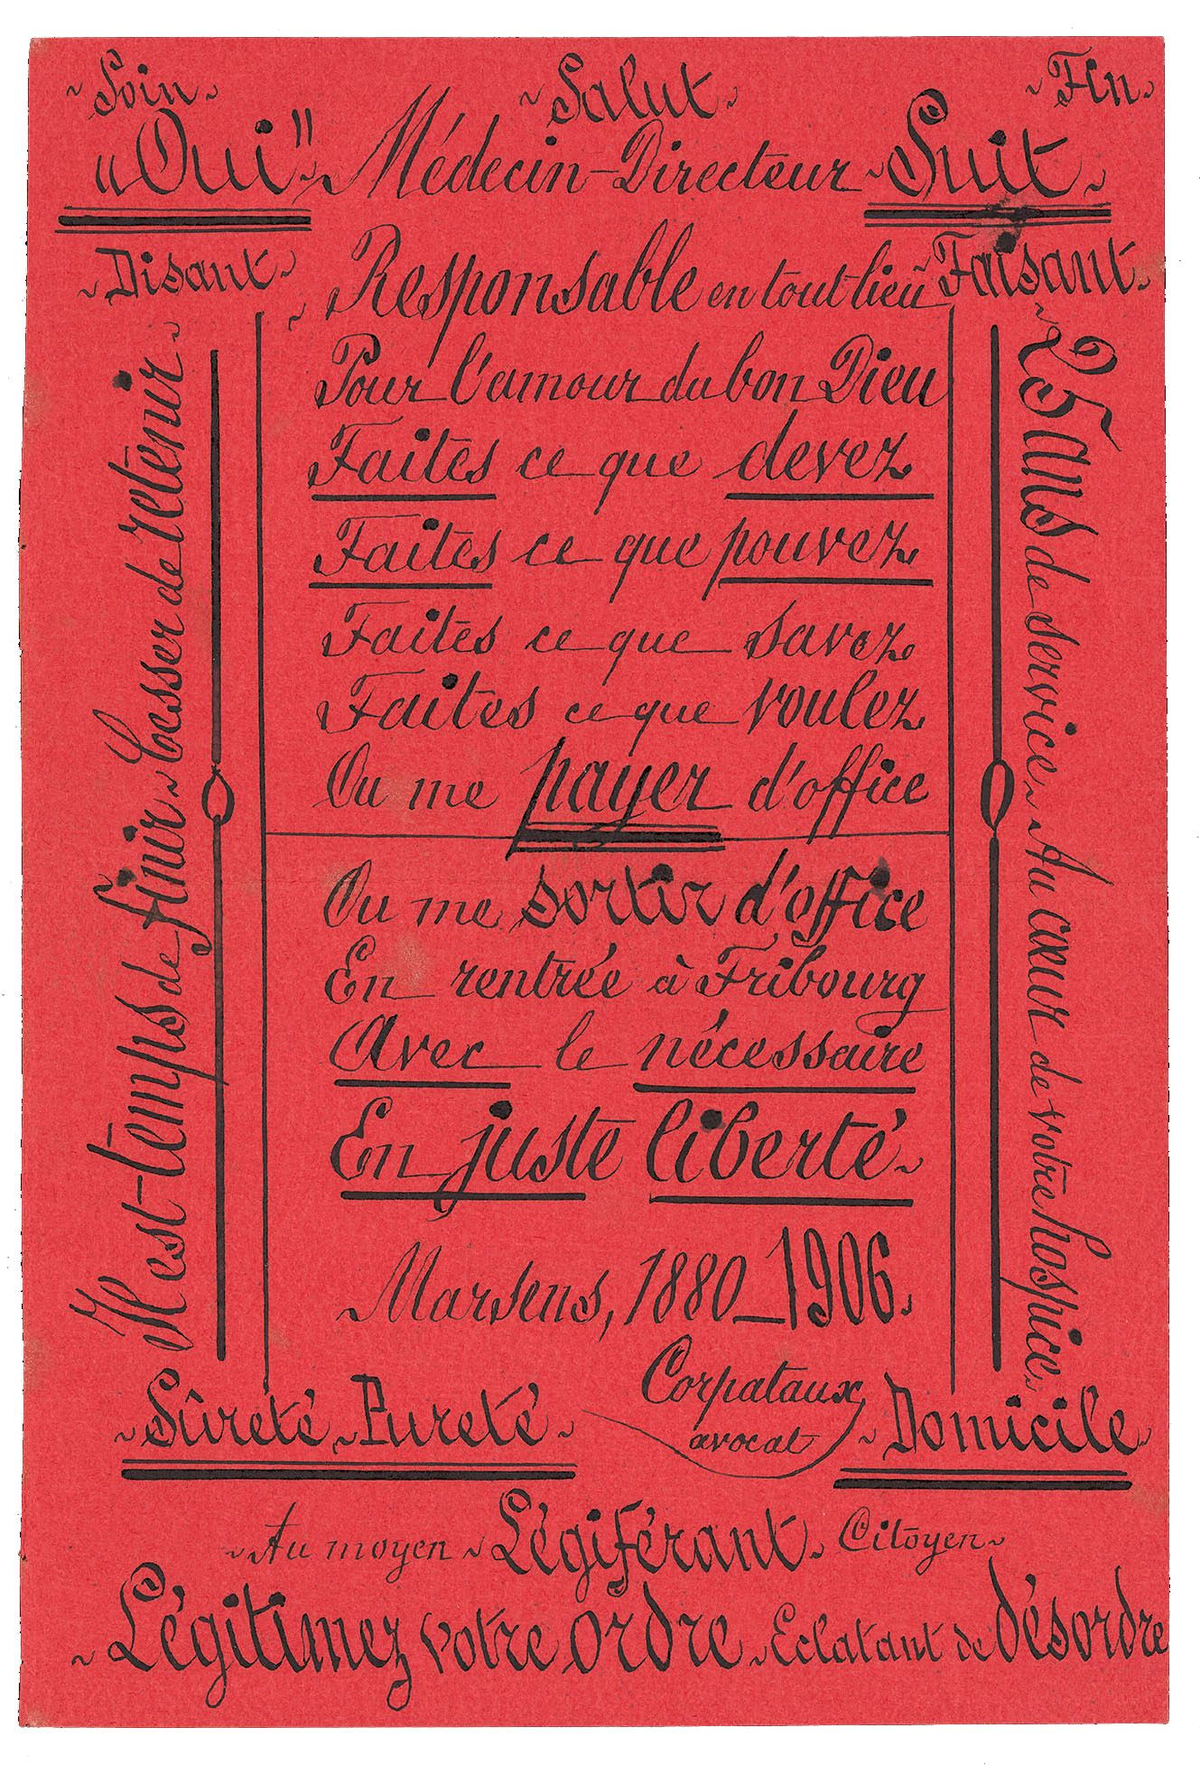 ~Soin~ ~Salut~ ~Fin~
"Oui" ~ Médecin-Directeur ~ Suit ~
~Disant~ ~Responsable en tout lieu ~Faisant~
Pour l'amour du bon Dieu
Faites ce que devez
Faites ce que pouvez
Faites ce que savez
Faites ce que voulez
Ou me payer d'office
Ou me sortir d'office
En rentrée à Fribourg
Avec le nécessaire
En juste liberté ~
Marsens, 1880_1906.
Corpataux,
avocat
Il est temps de finir ~ Cesser de retenir ~
~25 ans de service ~ Au cœur de votre hospice ~
~Sûreté ~ Pureté ~ ~Domicile~
~Au moyen ~ Légiférant ~ Citoyen ~
~ Légitimez votre ordre ~ Eclatant de désordre